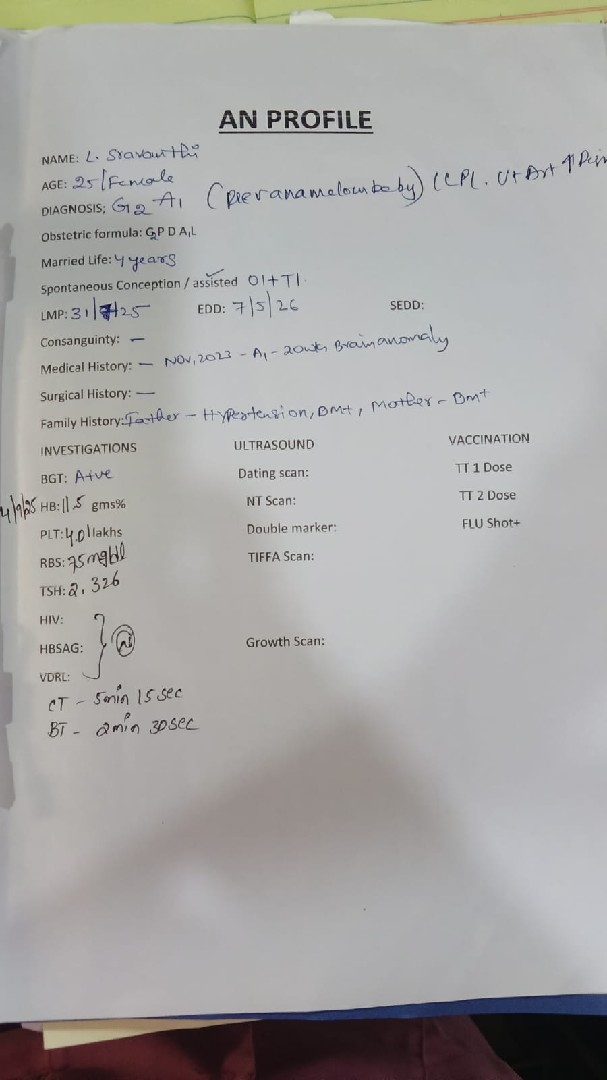 AN PROFILE
NAME: L. Sravanthi
AGE: 25/Female
DIAGNOSIS; G2 A1 (Prev anamaloun baby) (CPL. Ut Art
Obstetric formula: G2P D A1L
Married Life: 4 years
Spontaneous Conception / assisted OI+TI
LMP: 31/7/25 EDD: 7/5/26 SEDD:
Consanguinty: —
Medical History: — Nov, 2023 - A1 - 20wks Brain anomaly
Surgical History: —
Family History: Father - Hypertension, DM+, Mother - DM+
INVESTIGATIONS ULTRASOUND VACCINATION
BGT: A+ve Dating scan: TT 1 Dose
4/9/25 HB: 11.5 gms% NT Scan: TT 2 Dose
PLT: 4.01 lakhs Double marker: FLU Shot+
RBS: 75mg/dl TIFFA Scan:
TSH: 2.326
HIV:
HBSAG: Growth Scan:
VDRL:
CT - 5min 15 sec
BT - 2min 30sec